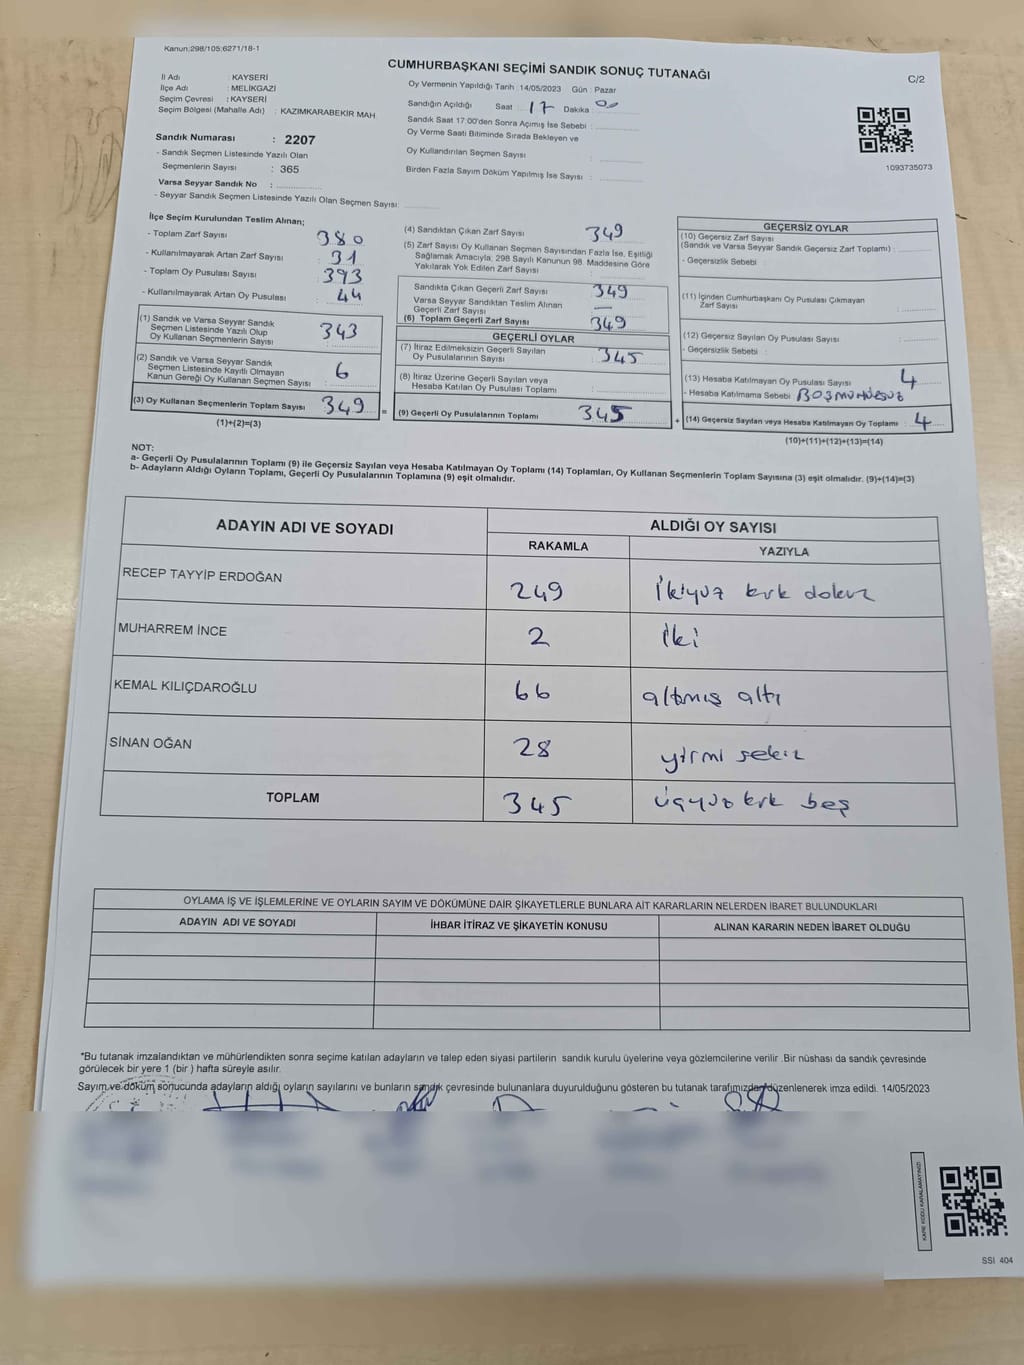 Kanun:298/105:6271/18-1
CUMHURBAŞKANI SEÇİMİ SANDIK SONUÇ TUTANAĞI
C/2
İl Adı : KAYSERİ
İlçe Adı : MELİKGAZİ
Seçim Çevresi : KAYSERİ
Seçim Bölgesi (Mahalle Adı) : KAZIMKARABEKİR MAH.
Sandık Numarası : 2207
- Sandık Seçmen Listesinde Yazılı Olan
Seçmenlerin Sayısı : 365
Varsa Seyyar Sandık No :
- Seyyar Sandık Seçmen Listesinde Yazılı Olan Seçmen Sayısı:
Oy Vermenin Yapıldığı Tarih :14/05/2023 Gün : Pazar
Sandığın Açıldığı Saat : 17 Dakika : 00
Sandık Saat 17:00'den Sonra Açımış İse Sebebi :
Oy Verme Saati Bitiminde Sırada Bekleyen ve
Oy Kullandırılan Seçmen Sayısı :
Birden Fazla Sayım Döküm Yapılmış İse Sayısı :
1093735073
İlçe Seçim Kurulundan Teslim Alınan;
- Toplam Zarf Sayısı : 380
- Kullanılmayarak Artan Zarf Sayısı : 31
- Toplam Oy Pusulası Sayısı : 393
- Kullanılmayarak Artan Oy Pusulası : 44
(1) Sandık ve Varsa Seyyar Sandık
Seçmen Listesinde Yazılı Olup
Oy Kullanan Seçmenlerin Sayısı : 343
(2) Sandık ve Varsa Seyyar Sandık
Seçmen Listesinde Kayıtlı Olmayan
Kanun Gereği Oy Kullanan Seçmen Sayısı : 6
(3) Oy Kullanan Seçmenlerin Toplam Sayısı : 349
(1)+(2)=(3)
=
(4) Sandıktan Çıkan Zarf Sayısı : 349
(5) Zarf Sayısı Oy Kullanan Seçmen Sayısından Fazla İse, Eşitliği
Sağlamak Amacıyla, 298 Sayılı Kanunun 98. Maddesine Göre
Yakılarak Yok Edilen Zarf Sayısı :
Sandıkta Çıkan Geçerli Zarf Sayısı : 349
Varsa Seyyar Sandıktan Teslim Alınan
Geçerli Zarf Sayısı : —
(6) Toplam Geçerli Zarf Sayısı : 349
GEÇERLİ OYLAR
(7) İtiraz Edilmeksizin Geçerli Sayılan
Oy Pusulalarının Sayısı : 345
(8) İtiraz Üzerine Geçerli Sayılan veya
Hesaba Katılan Oy Pusulası Toplamı :
(9) Geçerli Oy Pusulalarının Toplamı : 345
+
GEÇERSİZ OYLAR
(10) Geçersiz Zarf Sayısı
(Sandık ve Varsa Seyyar Sandık Geçersiz Zarf Toplamı) :
- Geçersizlik Sebebi :
(11) İçinden Cumhurbaşkanı Oy Pusulası Çıkmayan
Zarf Sayısı :
(12) Geçersiz Sayılan Oy Pusulası Sayısı :
- Geçersizlik Sebebi :
(13) Hesaba Katılmayan Oy Pusulası Sayısı : 4
- Hesaba Katılmama Sebebi : BOŞ MÜHÜRSÜZ
(14) Geçersiz Sayılan veya Hesaba Katılmayan Oy Toplamı : 4
(10)+(11)+(12)+(13)=(14)
NOT:
a- Geçerli Oy Pusulalarının Toplamı (9) ile Geçersiz Sayılan veya Hesaba Katılmayan Oy Toplamı (14) Toplamları, Oy Kullanan Seçmenlerin Toplam Sayısına (3) eşit olmalıdır. (9)+(14)=(3)
b- Adayların Aldığı Oyların Toplamı, Geçerli Oy Pusulalarının Toplamına (9) eşit olmalıdır.
ADAYIN ADI VE SOYADI ALDIĞI OY SAYISI
RAKAMLA YAZIYLA
RECEP TAYYİP ERDOĞAN 249 ikiyüz kırk dokuz
MUHARREM İNCE 2 iki
KEMAL KILIÇDAROĞLU 66 altmış altı
SİNAN OĞAN 28 yirmi sekiz
TOPLAM 345 üçyüz kırk beş
OYLAMA İŞ VE İŞLEMLERİNE VE OYLARIN SAYIM VE DÖKÜMÜNE DAİR ŞİKAYETLERLE BUNLARA AİT KARARLARIN NELERDEN İBARET BULUNDUKLARI
ADAYIN ADI VE SOYADI İHBAR İTİRAZ VE ŞİKAYETİN KONUSU ALINAN KARARIN NEDEN İBARET OLDUĞU
*Bu tutanak imzalandıktan ve mühürlendikten sonra seçime katılan adayların ve talep eden siyasi partilerin sandık kurulu üyelerine veya gözlemcilerine verilir .Bir nüshası da sandık çevresinde
görülecek bir yere 1 (bir ) hafta süreyle asılır.
Sayım ve döküm sonucunda adayların aldığı oyların sayılarını ve bunların sandık çevresinde bulunanlara duyurulduğunu gösteren bu tutanak tarafımızdan düzenlenerek imza edildi. 14/05/2023
KARE KODU KARALAMAYINIZ!
SSI 404